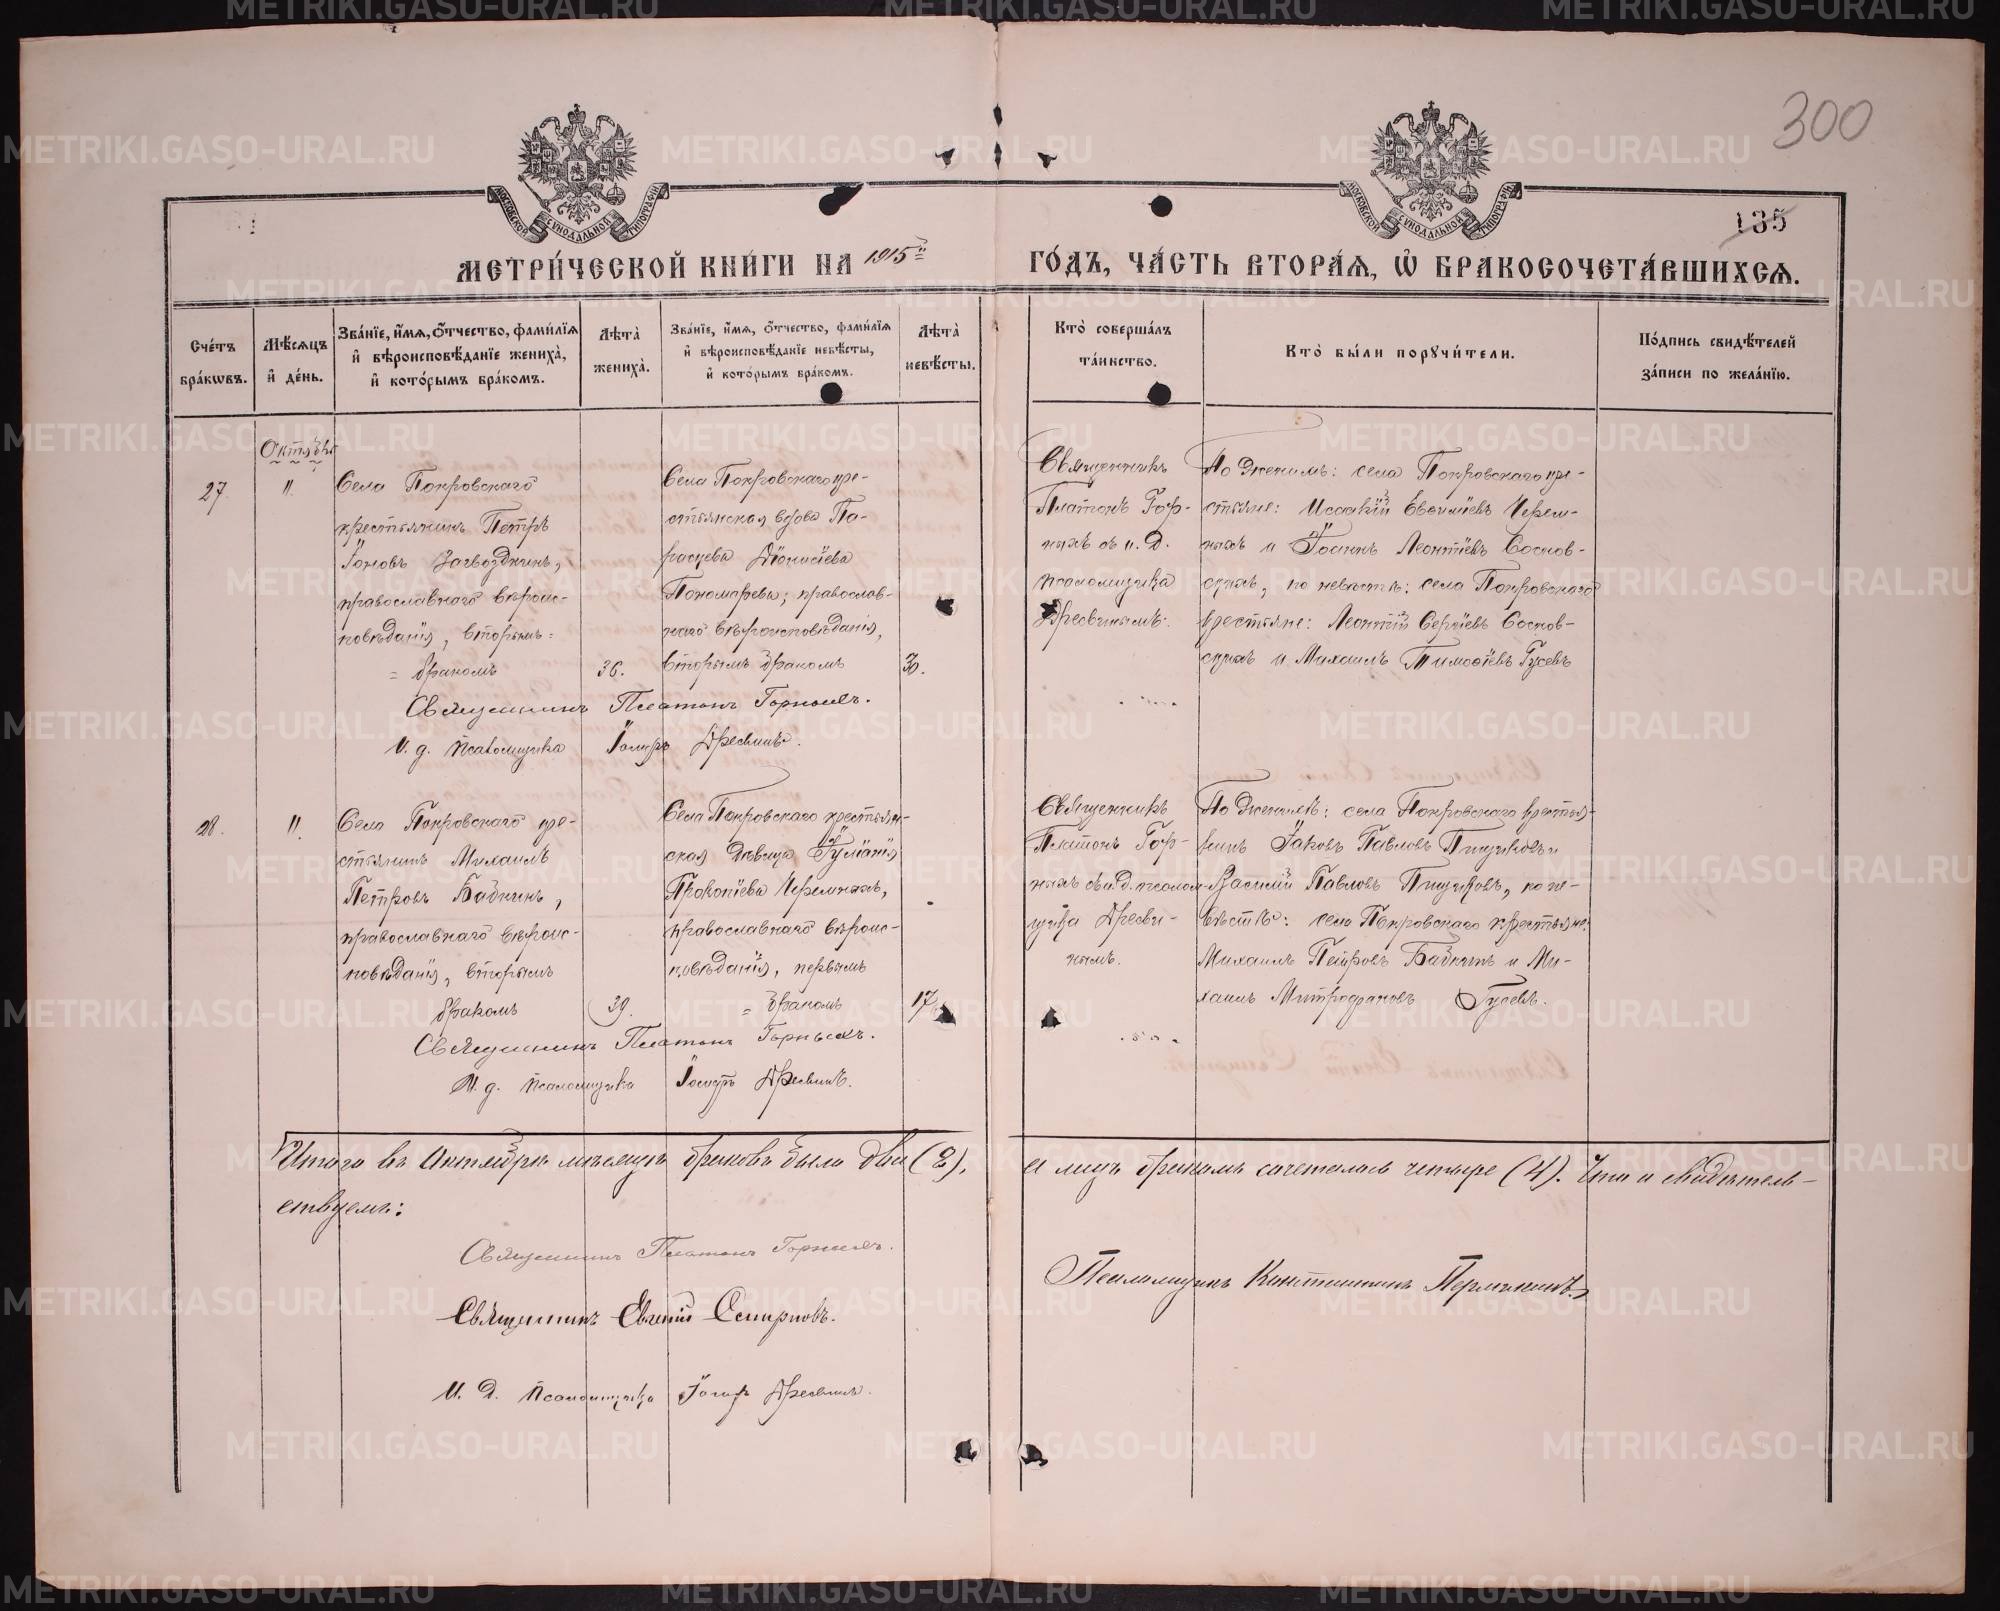 300
135
МЕТРИ́ЧЕСКОЙ КНИ́ГИ НА 1915й ГО́ДЪ, ЧА́СТЬ ВТОРА́Я, Ѡ БРАКОСОЧЕТА́ВШИХСЯ.
Сче́тъ бра́кωвъ.
Мѣ́сяцъ и҆ де́нь.
Зва́нїе, и҆́мя, ѻ҆́тчество, фами́лїя и҆ вѣроисповѣ́данїе жениха̀, и҆ кото́рымъ бра́комъ.
Лѣта̀ жениха̀.
Зва́нїе, и҆́мя, ѻ҆́тчество, фами́лїя и҆ вѣроисповѣ́данїе невѣ́сты, и҆ кото́рымъ бра́комъ.
Лѣта̀ невѣ́сты.
Кто̀ соверша́лъ та́инство.
Кто̀ бы́ли порꙋчи́тели.
По́дпись свидѣ́телей за́писи по жела́нїю.
Октябрь
27.
11.
Села Покровскаго
крестьянинъ Петръ
Іоновъ Загвоздкинъ,
православнаго вѣроис-
повѣданія, вторымъ =
= бракомъ
36.
Села Покровскаго кре-
стьянская вдова Па-
раскева Діонисіева
Пономарева; православ-
наго вѣроисповѣданія,
вторымъ бракомъ
30.
Священникъ
Платонъ Гор-
ныхъ съ и. д.
псаломщика
Дресвинымъ.
По женихѣ: села Покровскаго кре-
стьяне: Исаакій Евѳиміевъ Черем-
ныхъ и Іоаннъ Леонтіевъ Соснов-
скихъ, по невѣстѣ: села Покровскаго
крестьяне: Леонтій Сергіевъ Соснов-
скихъ и Михаилъ Тимоѳіевъ Гусевъ
Священникъ Платонъ Горныхъ.
И. д. псаломщика Дресвинъ.
28.
11.
Села Покровскаго кре-
стьянинъ Михаилъ
Петровъ Бабкинъ,
православнаго вѣроис-
повѣданія, вторымъ
бракомъ
39.
Села Покровскаго крестьян-
ская дѣвица Іуліанія
Прокопіева Черемныхъ,
православнаго вѣроис-
повѣданія, первымъ
= бракомъ
17
Священникъ
Платонъ Гор-
ныхъ съ и.д. псалом-
щика Дресви-
нымъ.
По женихѣ: села Покровскаго крестья-
нинъ Іаковъ Павловъ Пищиковъ и
Василій Павловъ Пищиковъ, по не-
вѣстѣ: села Покровскаго крестьяне:
Михаилъ Петровъ Бабкинъ и Ми-
хаилъ Митрофановъ Гусевъ.
Священникъ Платонъ Горныхъ.
И. д. псаломщика Дресвинъ.
Итого въ Октябрѣ мѣсяцѣ браковъ было два (2), а лицъ бракомъ сочеталось четыре (4). Что и свидѣтель-
ствуемъ:
Священникъ Платонъ Горныхъ.
Священникъ Евгеній Смирновъ.
И. д. псаломщика Дресвинъ.
Псаломщикъ Константинъ Пермикинъ
METRIKI.GASO-URAL.RU